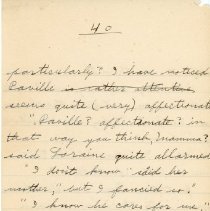 40
particularly? I have noticed
Saville is rather attentive
seems quite (very) affectionate
"Saville? affectionate? in
that way you think, mamma?
said Loraine quite allarmed
"I don't know" said her
mother, "but I fancied so."
"I know he cares for me,"